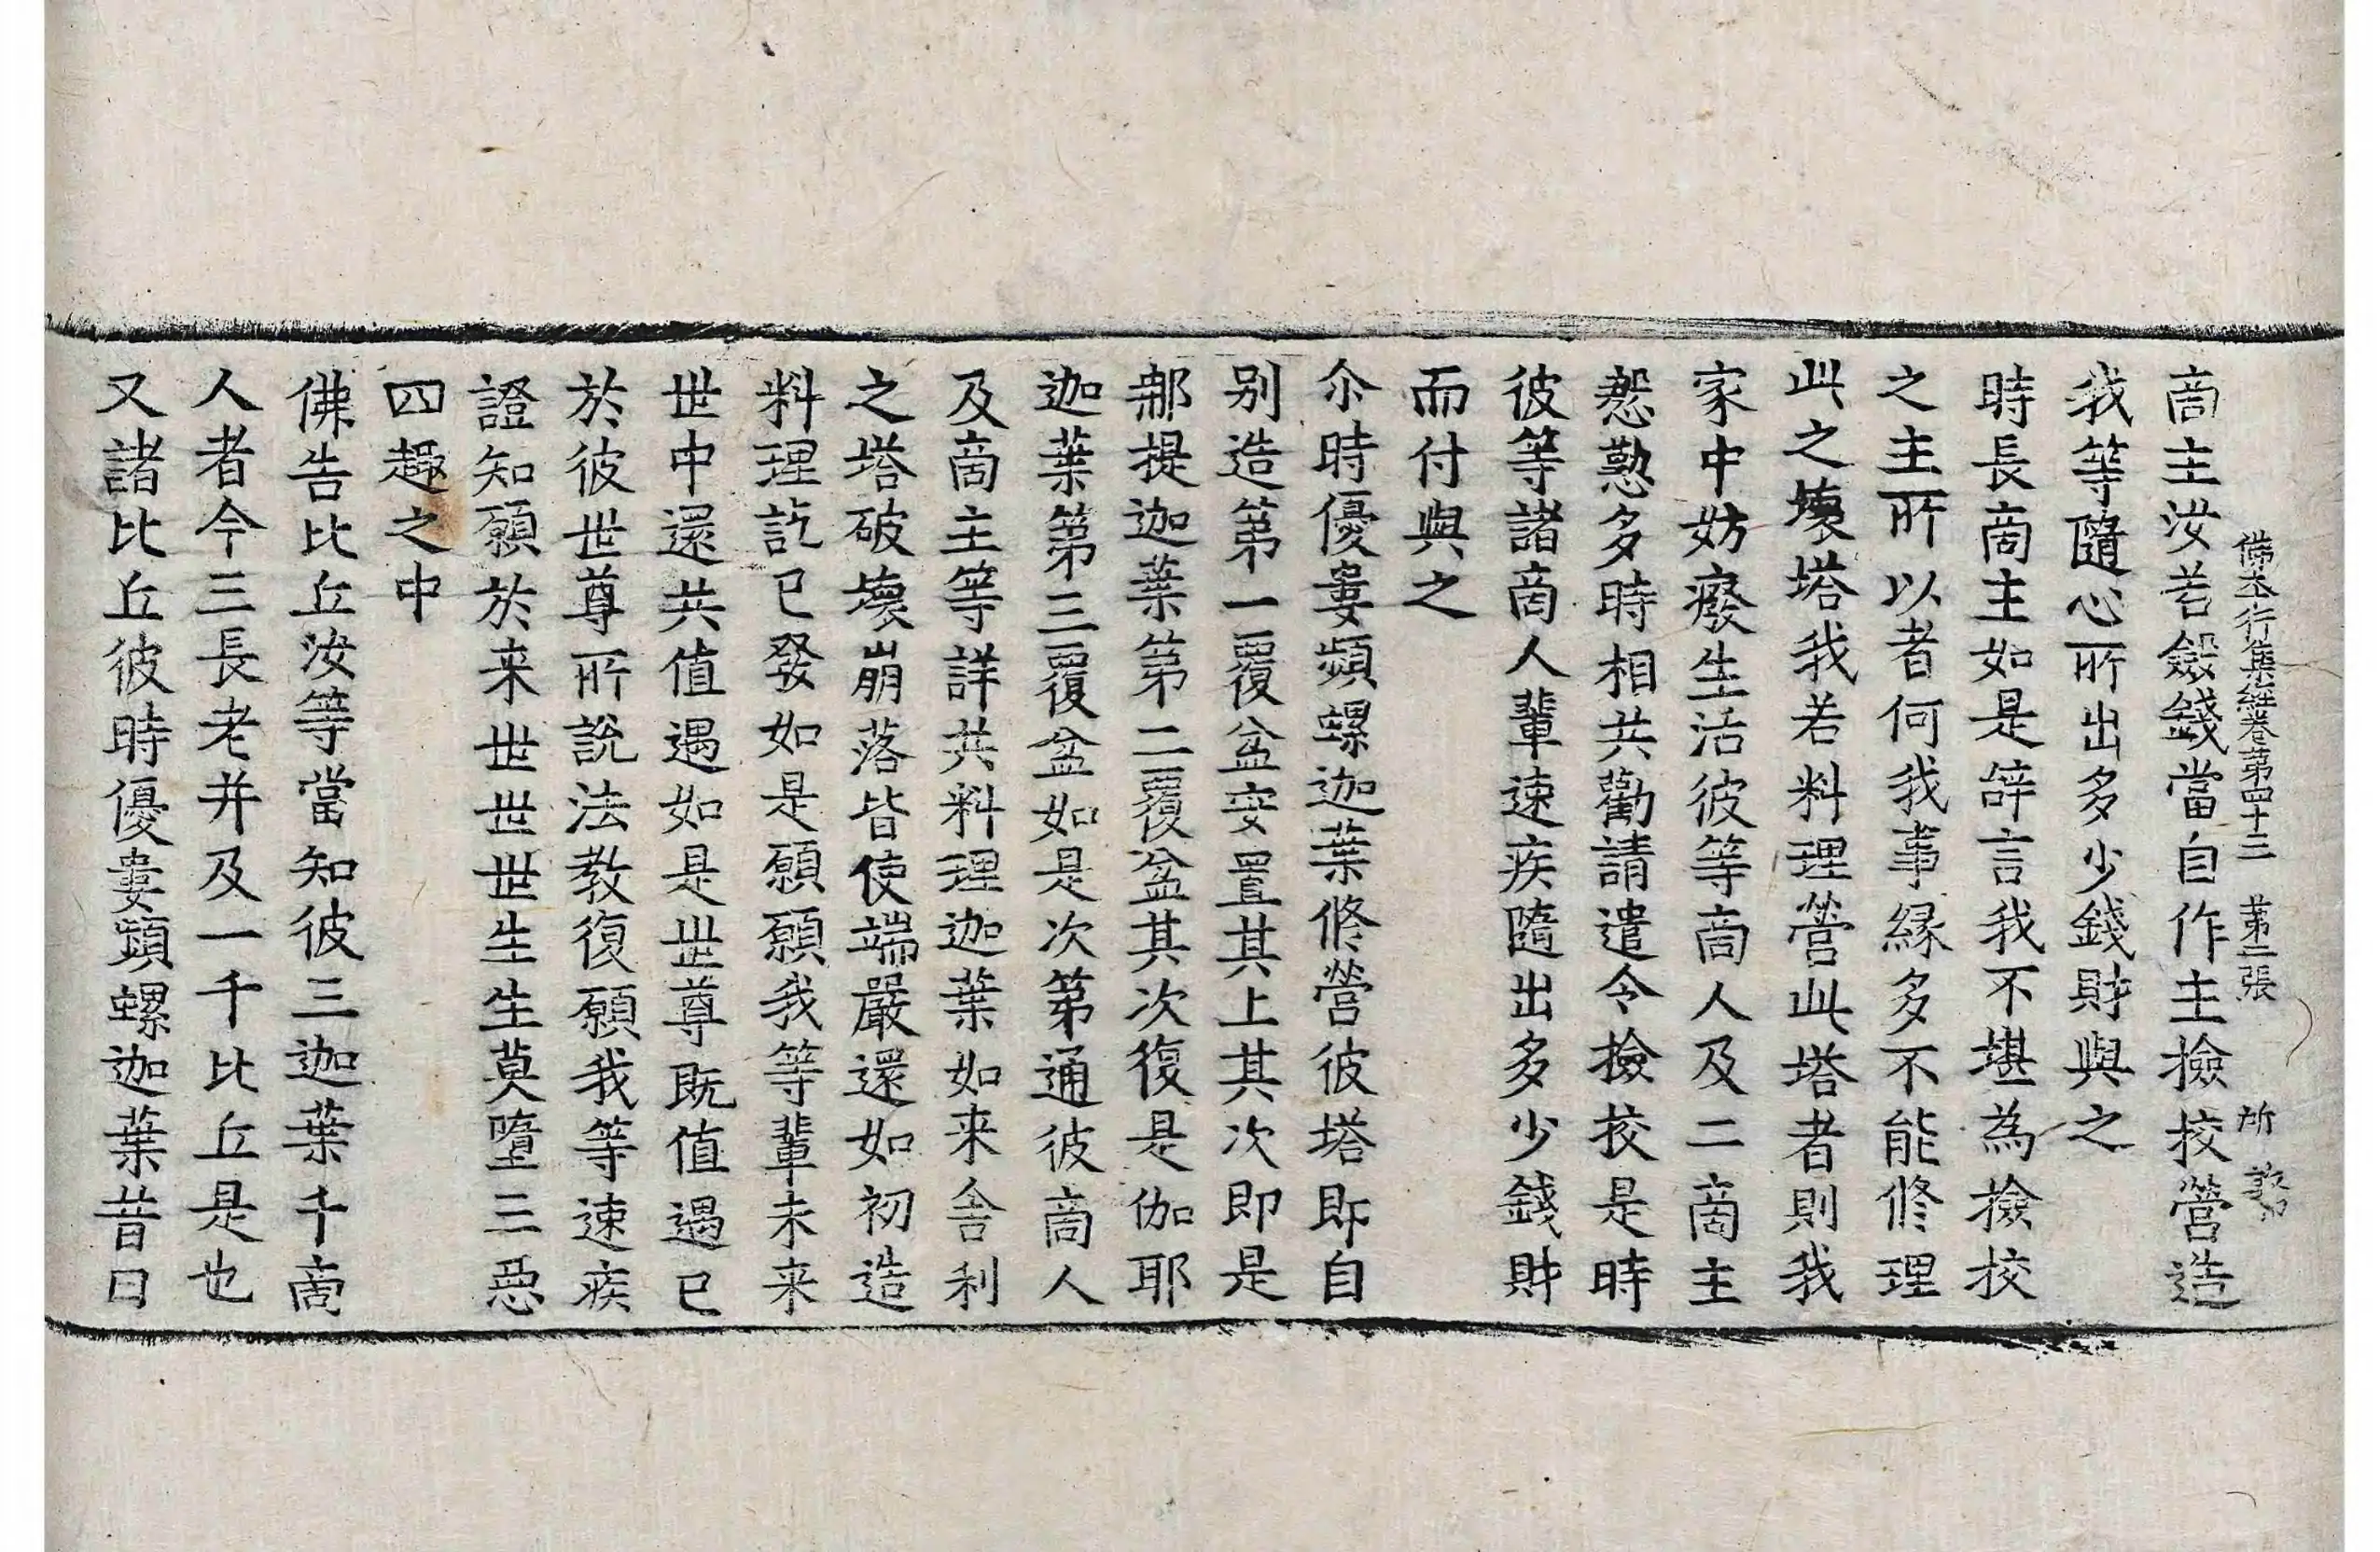 佛本行集經卷第四十二 第二張 所
啇主汝若斂錢當自作主撿挍營造
我等隨心所出多少錢財與之
時長啇主如是辝言我不堪為撿挍
之主所以者何我事緣多不能修理
此之壞塔我若料理營此塔者則我
家中妨癈生活彼等啇人及二啇主
慇懃多時相共勸請遣令撿挍是時
彼等諸啇人輩速疾隨出多少錢財
而付與之
尒時優婁頻螺迦葉修營彼塔即自
别造第一覆盆安置其上其次即是
那提迦葉第二覆盆其次復是伽耶
迦葉第三覆盆如是次第通彼啇人
及啇主等詳共料理迦葉如来舎利
之塔破壞崩落皆使端嚴還如初造
料理訖已發如是願願我等輩未来
世中還共值遇如是世尊既值遇已
於彼世尊所說法教復願我等速疾
證知願於来世世世生生莫墮三惡
四趣之中
佛告比丘汝等當知彼三迦葉千啇
人者今三長老并及一千比丘是也
又諸比丘彼時優婁頻螺迦葉昔日